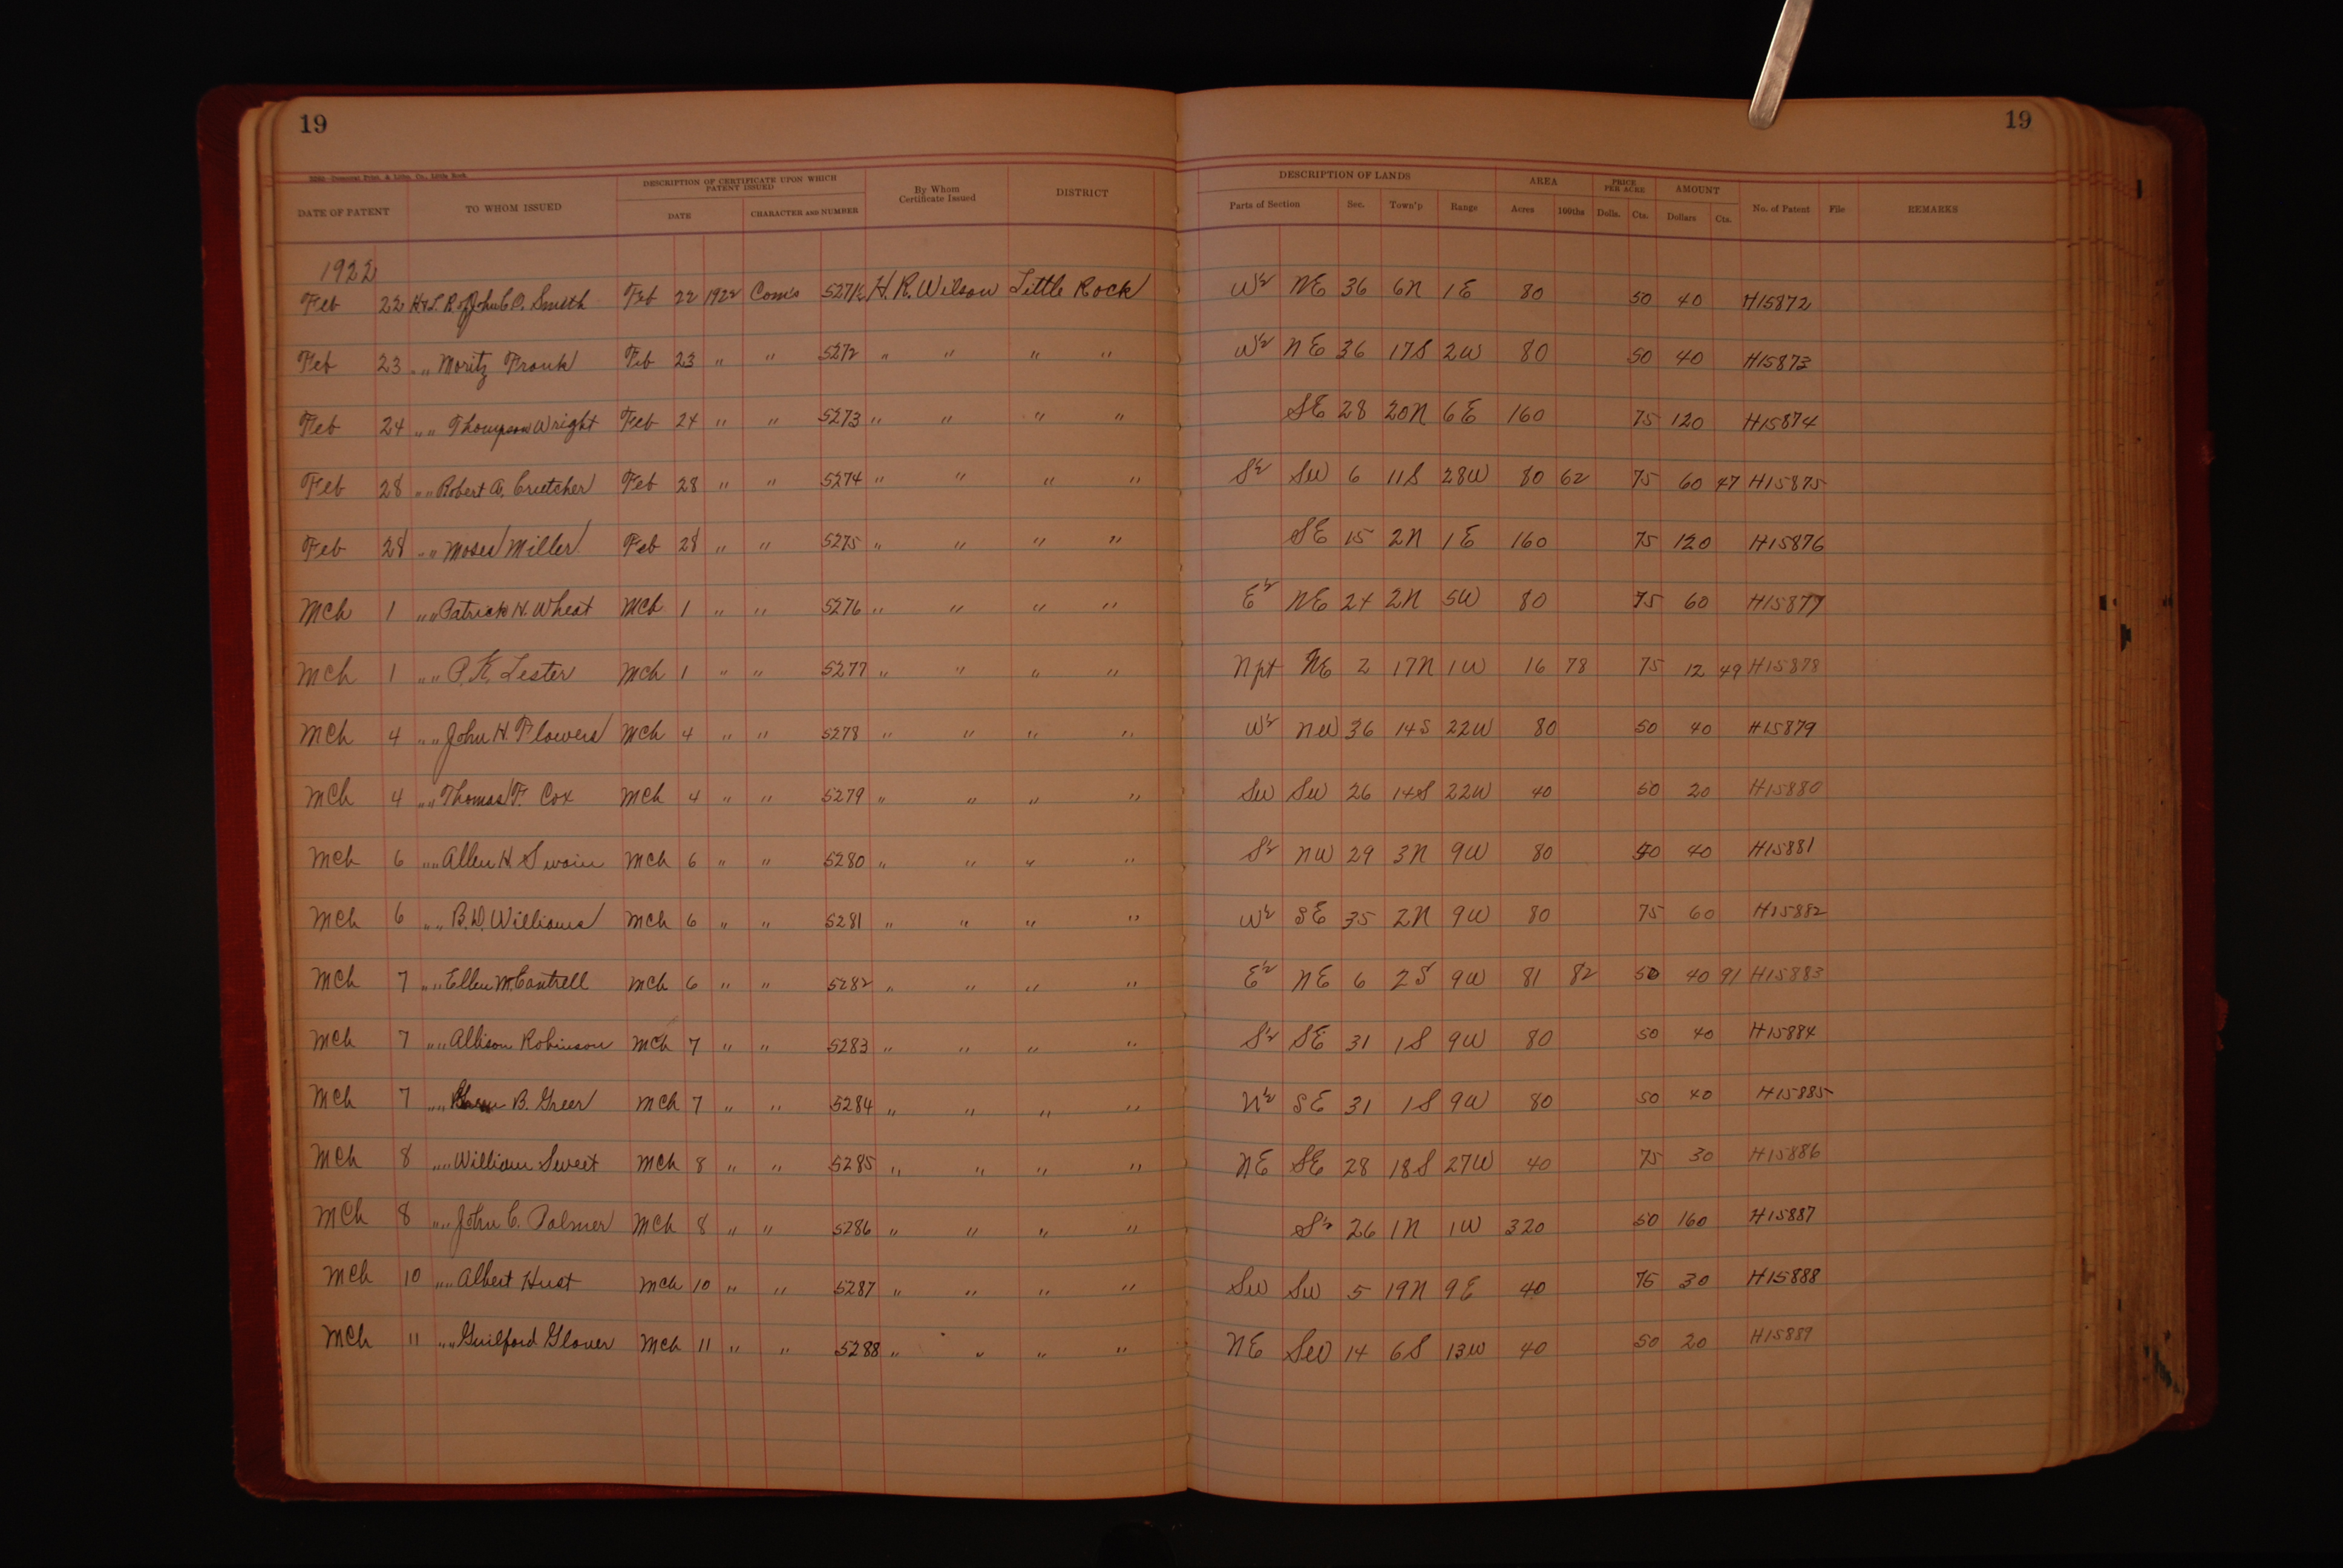 19 19
3202—Democrat Print. & Litho. Co., Little Rock
DATE OF PATENT TO WHOM ISSUED DESCRIPTION OF CERTIFICATE UPON WHICH PATENT ISSUED DATE CHARACTER AND NUMBER By Whom Certificate Issued DISTRICT DESCRIPTION OF LANDS Parts of Section Sec. Town'p Range AREA Acres 100ths PRICE PER ACRE Dolls. Cts. AMOUNT Dollars Cts. No. of Patent File REMARKS
1922
Feb 22 H & L. R of John C. Smith Feb 22 1922 Com's 5271½ H. R. Wilson Little Rock W½ NE 36 6N 1E 80 50 40 H15872
Feb 23 " " Moritz Frank Feb 23 " " 5272 " " " " W½ NE 36 17S 2W 80 50 40 H15873
Feb 24 " " Thompson Wright Feb 24 " " 5273 " " " " SE 28 20N 6E 160 75 120 H15874
Feb 28 " " Robert A. Crutcher Feb 28 " " 5274 " " " " S½ SW 6 11S 28W 80 62 75 60 47 H15875
Feb 28 " " Moses Miller Feb 28 " " 5275 " " " " SE 15 2N 1E 160 75 120 H15876
Mch 1 " " Patrick H. Wheat Mch 1 " " 5276 " " " " E½ NE 24 2N 5W 80 75 60 H15877
Mch 1 " " P. K. Lester Mch 1 " " 5277 " " " " N pt NE 2 17N 1W 16 78 75 12 49 H15878
Mch 4 " " John H. Flowers Mch 4 " " 5278 " " " " W½ NW 36 14S 22W 80 50 40 H15879
Mch 4 " " Thomas F. Cox Mch 4 " " 5279 " " " " SW SW 26 14S 22W 40 50 20 H15880
Mch 6 " " Allen H Swain Mch 6 " " 5280 " " " " S½ NW 29 3N 9W 80 50 40 H15881
Mch 6 " " B. D. Williams Mch 6 " " 5281 " " " " W½ SE 35 2N 9W 80 75 60 H15882
Mch 7 " " Ellen M. Cantrell Mch 6 " " 5282 " " " " E½ NE 6 2S 9W 81 82 50 40 91 H15883
Mch 7 " " Allison Robinson Mch 7 " " 5283 " " " " S½ SE 31 1S 9W 80 50 40 H15884
Mch 7 " " B. Greer Mch 7 " " 5284 " " " " N½ SE 31 1S 9W 80 50 40 H15885
Mch 8 " " William Sweet Mch 8 " " 5285 " " " " NE SE 28 18S 27W 40 75 30 H15886
Mch 8 " " John C. Palmer Mch 8 " " 5286 " " " " S½ 26 1N 1W 320 50 160 H15887
Mch 10 " " Albert Hust Mch 10 " " 5287 " " " " SW SW 5 19N 9E 40 75 30 H15888
Mch 11 " " Guilford Glover Mch 11 " " 5288 " " " " NE SW 14 6S 13W 40 50 20 H15889